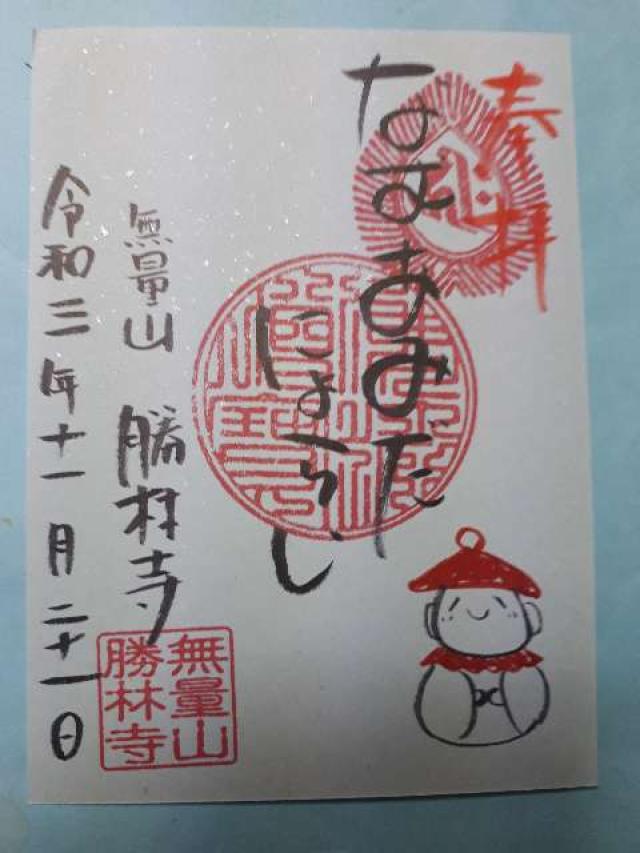 奉拝
なむあみだ
にょらい
無量山 勝林寺
令和三年十一月二十一日
無量山
勝林寺